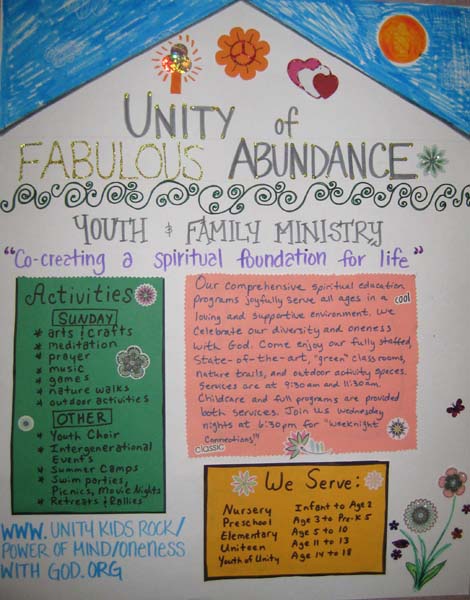 UNITY of
FABULOUS ABUNDANCE
YOUTH & FAMILY MINISTRY
"Co-creating a spiritual foundation for life"
Activities
SUNDAY
* arts & crafts
* meditation
* prayer
* music
* games
* nature walks
* outdoor activities
OTHER
* Youth Choir
* Intergenerational
Events
* Summer Camps
* Swim parties,
Picnics, Movie Nights
* Retreats & Rallies
Our comprehensive spiritual education
programs joyfully serve all ages in a
cool
loving and supportive environment. We
celebrate our diversity and oneness
with God. Come enjoy our fully staffed,
State-of-the-art, "green" classrooms,
nature trails, and outdoor activity spaces.
Services are at 9:30am and 11:30am.
Childcare and full programs are provided
both services. Join us Wednesday
nights at 6:30pm for "Weeknight
Connections!"
classic
We Serve:
Nursery Infant to Age 2
Preschool Age 3 to Pre-K 5
Elementary Age 5 to 10
Uniteen Age 11 to 13
Youth of Unity Age 14 to 18
WWW. UNITY KIDS ROCK/
POWER OF MIND/ONENESS
WITH GOD.ORG